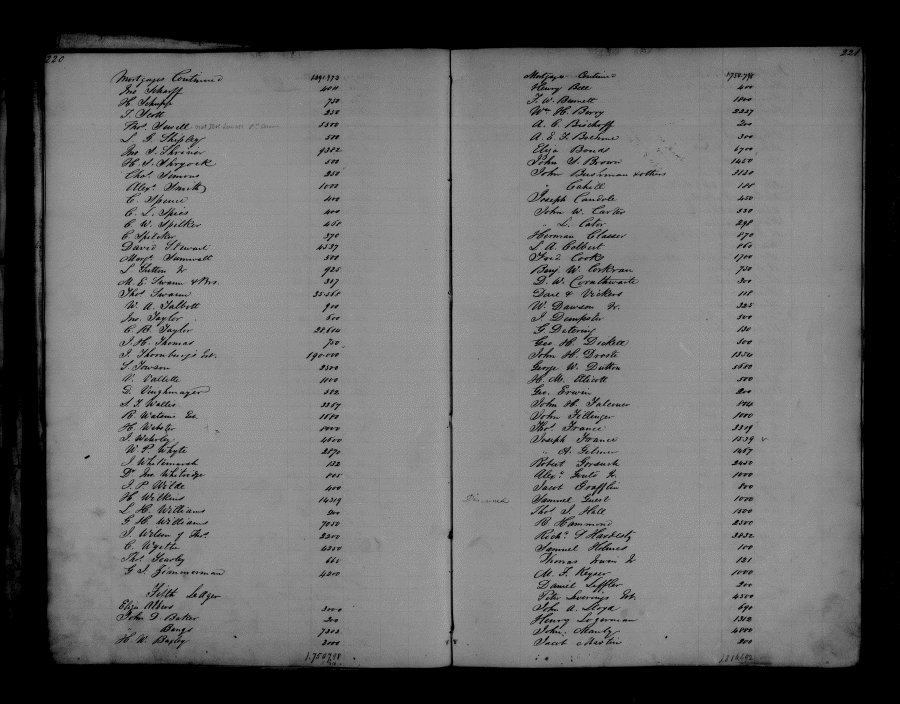 220
Mortgages Continued 1691973
Jno Scharff 400
H. Schupp 750
T. Scott 250
Thos. Sewell 5500
L. G. Shipley 500
Jno S. Shriver 9302
H. S. Shryock 500
Chas. Simons 250
Alexr. Smith 1000
C. Spence 400
C. L. Spies 400
C. W. Spilker 450
C. Spilcker 370
David Stewart 4537
Margt. Sumwalt 500
L Sutton Jr 925
M. E. Swann & Bro. 317
Thos Swann 35.561
W. A. Talbott 900
Jno. Taylor 500
C. R. Taylor 28.614
J. H. Thomas 750
J. Thornburg's Est. 190.000
S. Towson 2500
V. Vallette 1100
D. 502
S. T. Wallis 3367
R. Watsons Est.
H. Webster 1000
J. 4600
W. P. Whyte 2870
J. Whitemarsh 132
Dr. Jno. Whitridge 105
J. P. Wilde 400
H. Wilkins 14319
L H. Williams 200
G H. Williams 7050
J. Wilson of Thos. 2200
C. Wyeth 4250
Thos. Yearley 660
G. J. Zimmerman 4200
Fifth Ledger
Eliza Albers 3000
John D. Baker 300
" Bangs 7303
H. W. Bagley 3000
1.750798
221
Mortgages Continued 1750.798
Henry Bell 400
F. W. Bennett 1000
Wm H. Berry 2237
A. C. Bischoff 200
A. E. F. Boehme 300
Eliza Bonds 6700
John S. Brown 1450
John Bushman & others 3120
" Cahill 188
Joseph Caudole 450
John W. Carter 530
" L. Cator 298
Herman Classer 870
L A. Colbert 860
Fred Cooke 1700
Benj W. Corkran 750
D. W. Cornthwaite 300
Dare & Vickers 118
W. Dawson Jr. 325
J. Dempster 500
G. Detering 130
Geo H. Dickell 500
John H. Droste 1354
George W. Dutton 5650
H. Mc. Elicott 500
Geo. Erwin 200
John H. Falconer
John Fellinger 1000
Thos France 3319
Joseph France 1539
" A. Gelmer 1467
Robert Gorsuch 2450
Alexr. Gould Jr. 1000
Jacob Grafflin 800
Samuel Guest 1000
Thos J. Hall 1500
R. Hammond 2500
Richd. D Hardesty 3032
Samuel Holmes 100
Thomas Irwin Jr 121
M. F. Keyser 1000
Daniel Leffler 200
Peter Leverings Est. 4500
John A. Lloyd 690
Henry Logerman 1312
John Manly 4000
Jacob Maslin 300